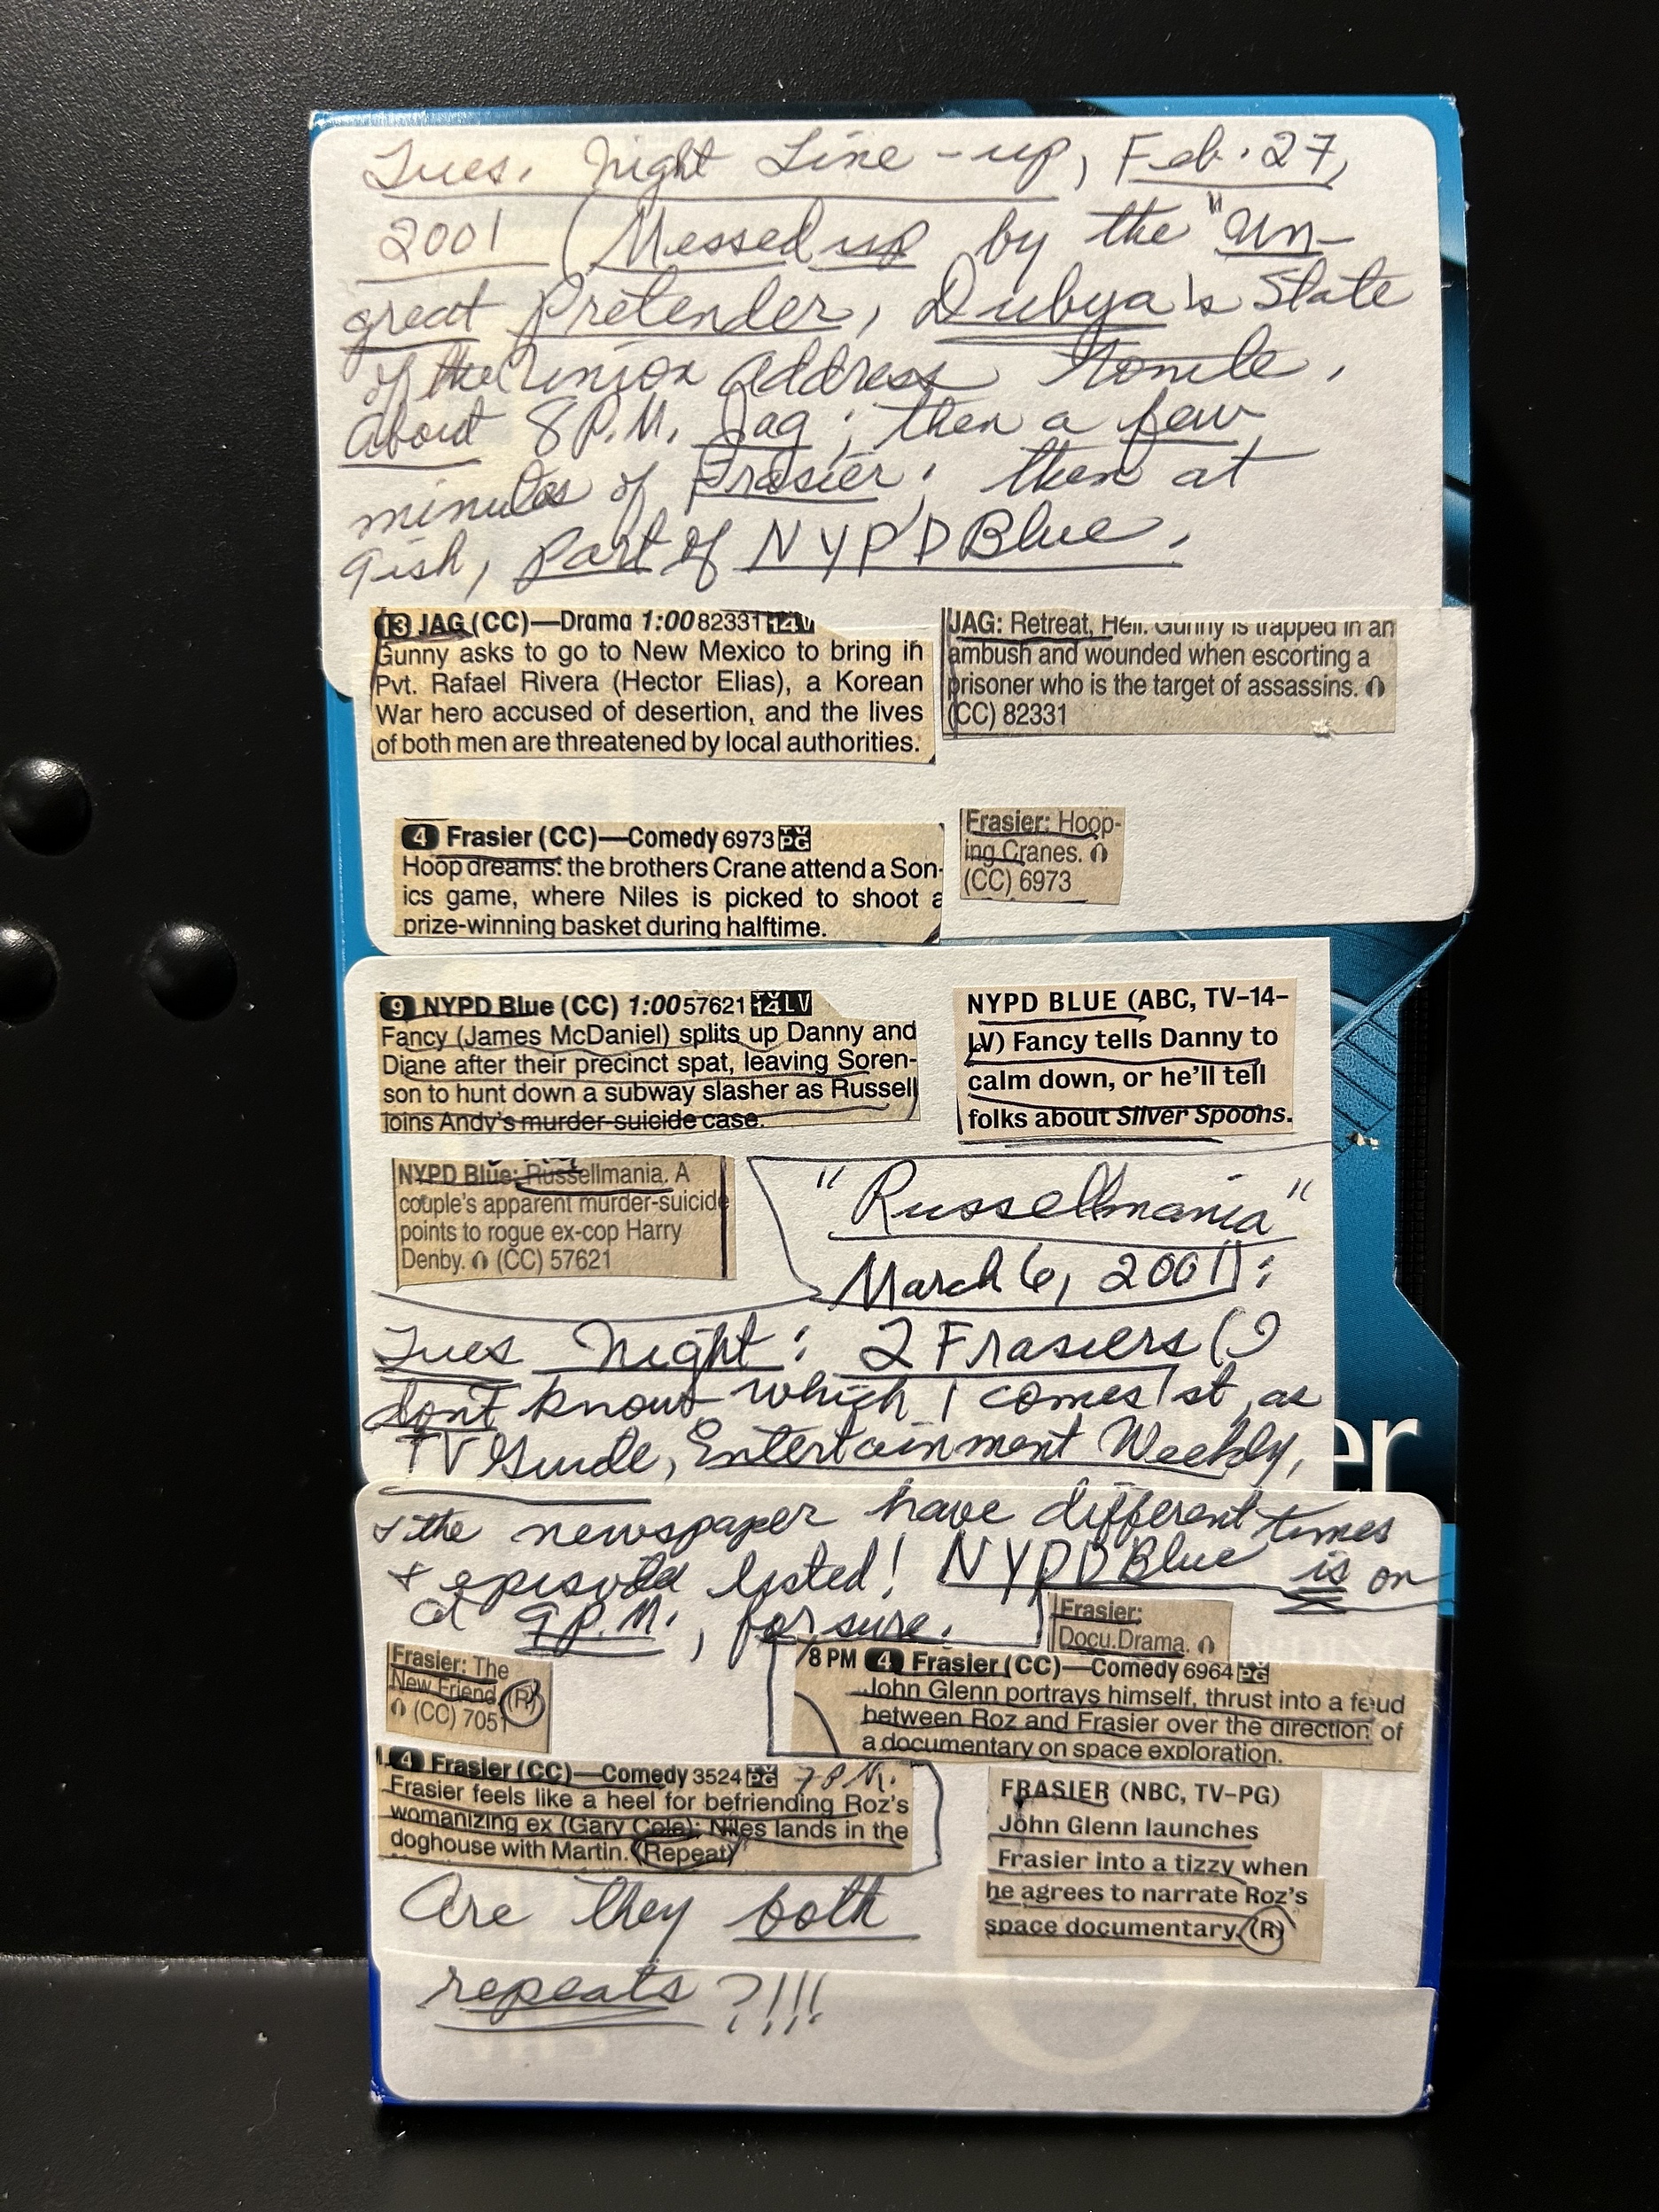 Tues. Night Line-up, Feb. 27,
2001 (Messed up by the "Un-
great Pretender, Dubya's State
of the Union address tonite,
About 8 P.M. Jag; then a few
minutes of Frasier; then at
9ish, part of NYPD Blue.
13 JAG (CC)—Drama 1:00 82331 14V
Gunny asks to go to New Mexico to bring in
Pvt. Rafael Rivera (Hector Elias), a Korean
War hero accused of desertion, and the lives
of both men are threatened by local authorities.
JAG: Retreat, Hell. Gunny is trapped in an
ambush and wounded when escorting a
prisoner who is the target of assassins.
(CC) 82331
4 Frasier (CC)—Comedy 6973 TV PG
Hoop dreams: the brothers Crane attend a Son-
ics game, where Niles is picked to shoot a
prize-winning basket during halftime.
Frasier: Hoop-
ing Cranes.
(CC) 6973
9 NYPD Blue (CC) 1:00 57621 TV 14 LV
Fancy (James McDaniel) splits up Danny and
Diane after their precinct spat, leaving Soren-
son to hunt down a subway slasher as Russell
joins Andy's murder-suicide case.
NYPD BLUE (ABC, TV–14–
LV) Fancy tells Danny to
calm down, or he'll tell
folks about Silver Spoons.
NYPD Blue: Russellmania. A
couple's apparent murder-suicide
points to rogue ex-cop Harry
Denby. (CC) 57621
"Russellmania"
March 6, 2001:
Tues Night: 2 Frasiers (I
don't know which 1 comes 1st, as
TV Guide, Entertainment Weekly,
er
& the newspaper have different times
& episodes listed! NYPD Blue is on
at 9 P.M., for sure.
Frasier:
Docu.Drama.
Frasier: The
New Friend. (R)
(CC) 7051
8 PM 4 Frasier (CC)—Comedy 6964 PG
John Glenn portrays himself, thrust into a feud
between Roz and Frasier over the direction of
a documentary on space exploration.
4 Frasier (CC)—Comedy 3524 TV PG 7 P.M.
Frasier feels like a heel for befriending Roz's
womanizing ex (Gary Cole); Niles lands in the
doghouse with Martin. (Repeat)
FRASIER (NBC, TV–PG)
John Glenn launches
Frasier into a tizzy when
he agrees to narrate Roz's
space documentary. (R)
Are they both
repeats?!!!